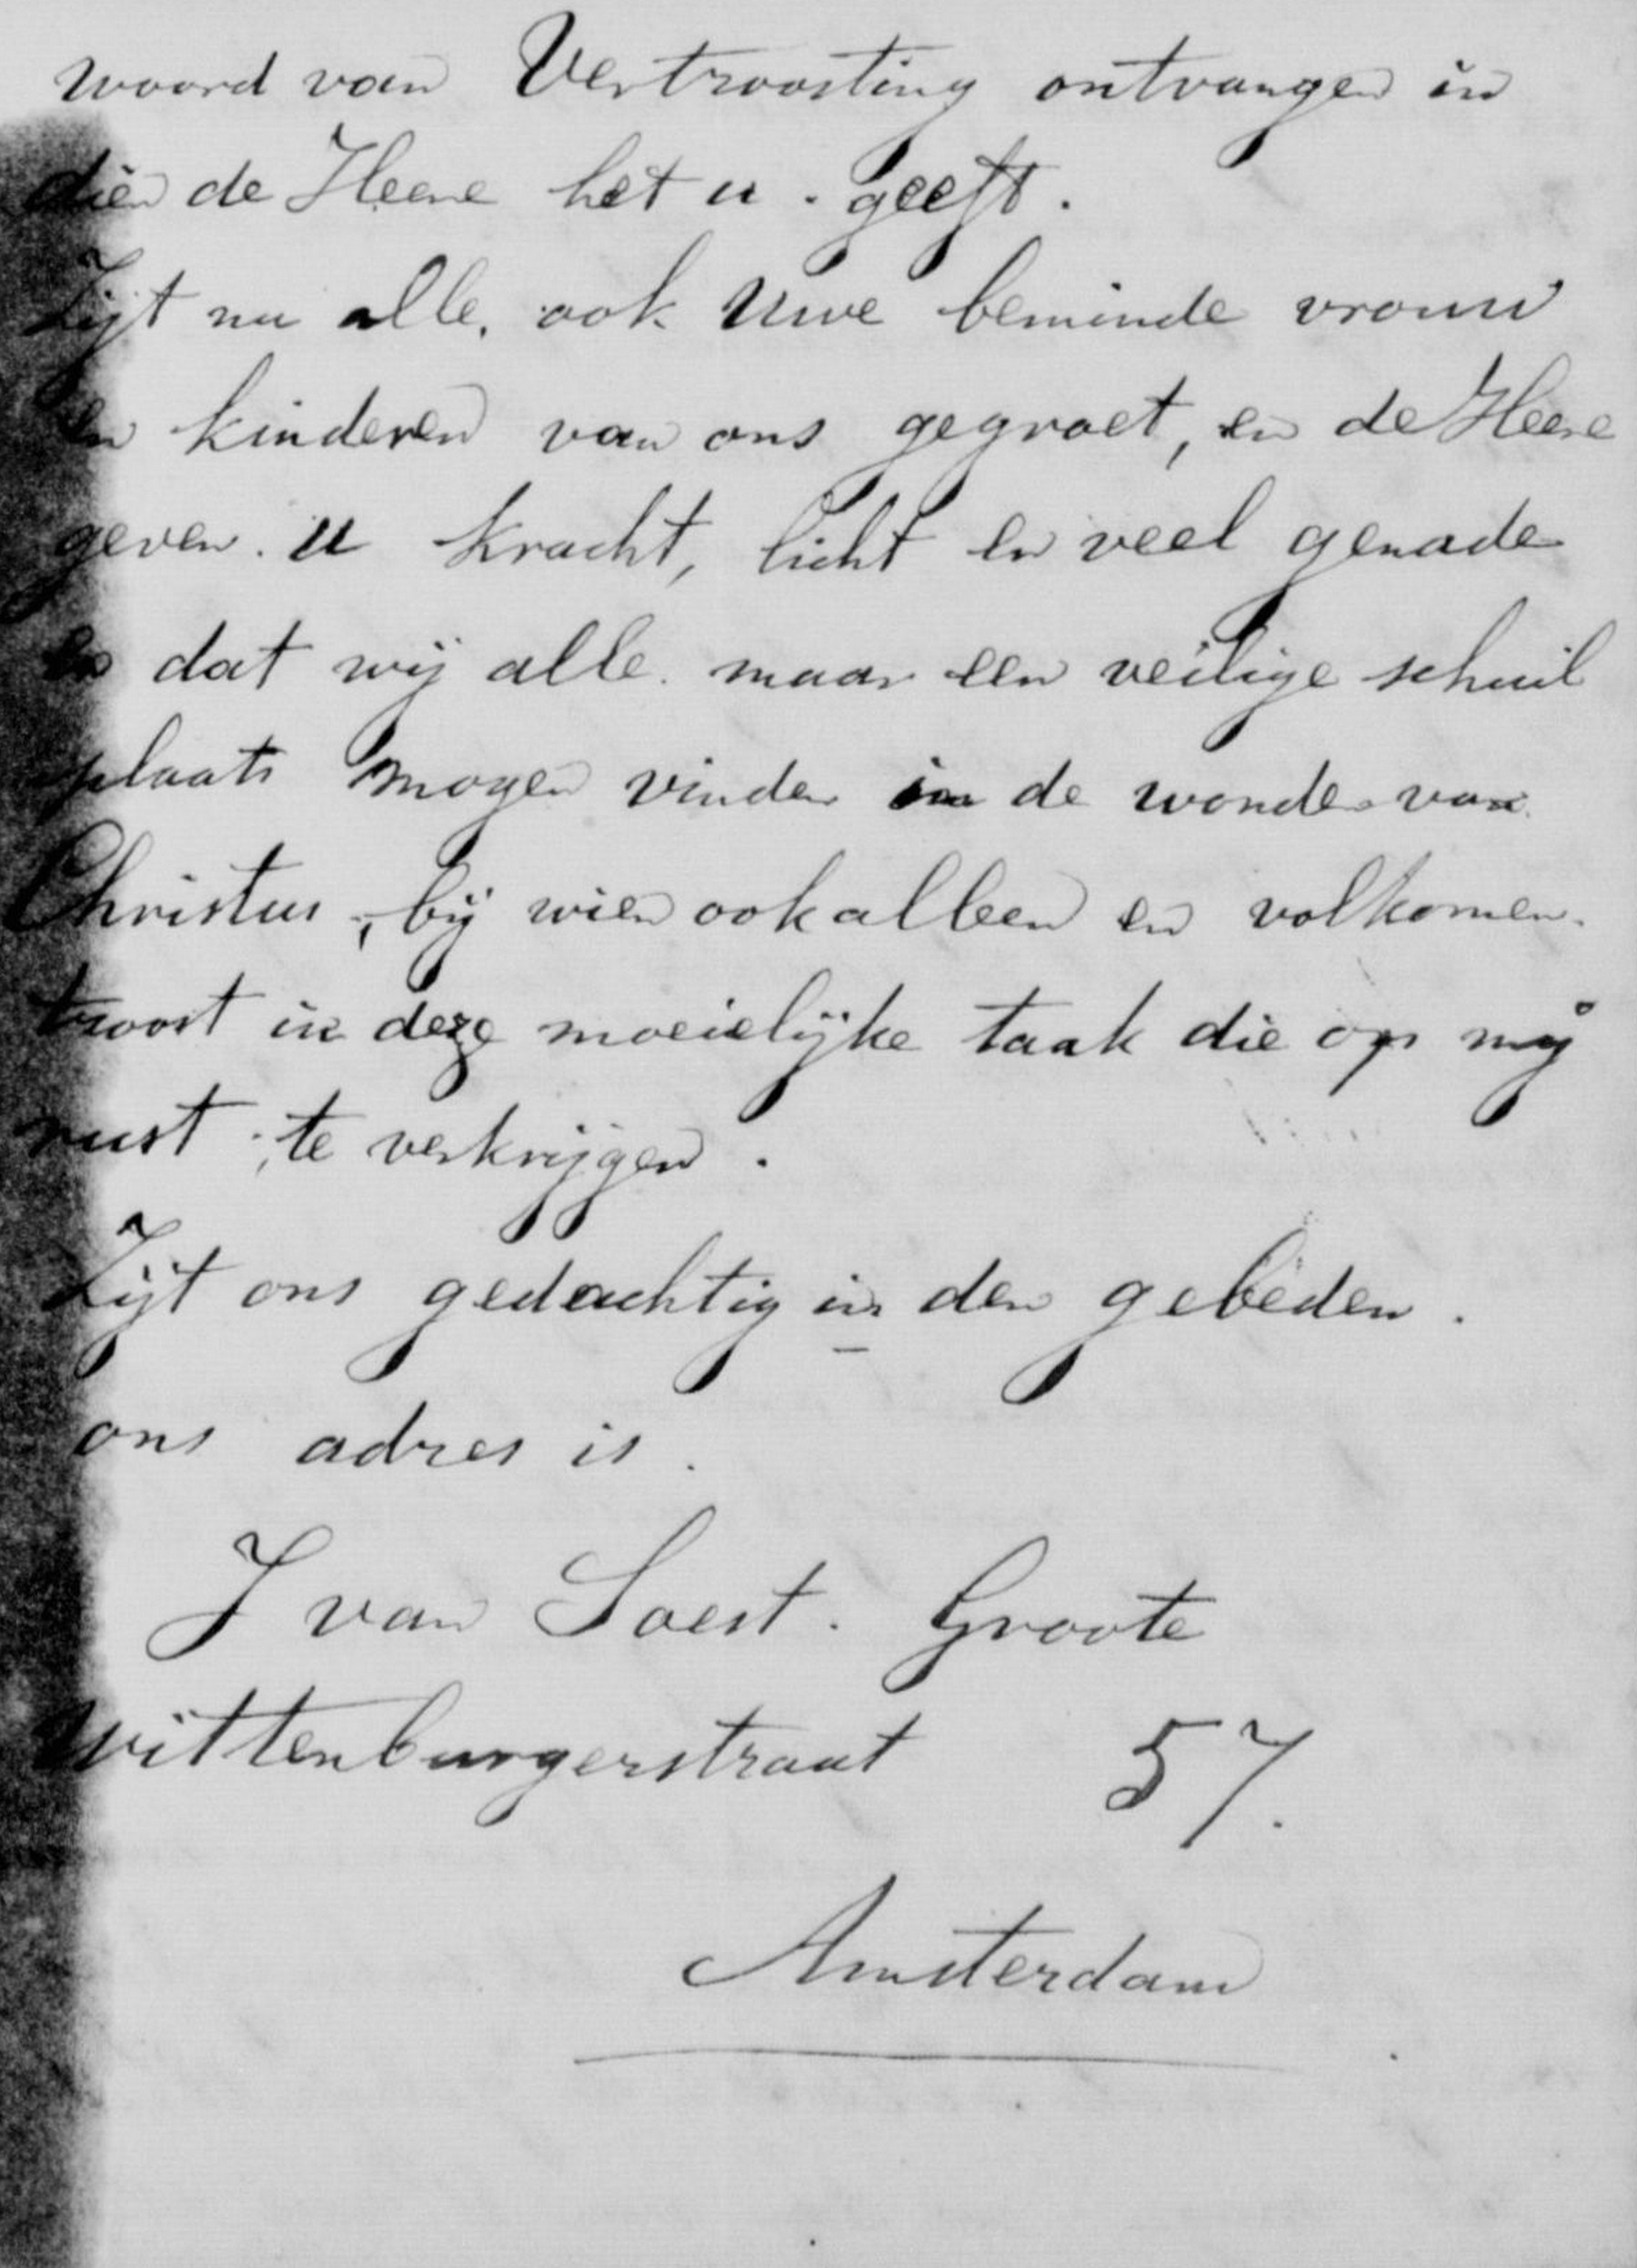 woord van Vertroosting ontvangen in
dien de Heere het u. geeft.
Zijt nu alle, ook Uwe beminde vrouw
en kinderen van ons gegroet, en de Heere
geven. U kracht, licht en veel genade
en dat wij alle. maar een veilige schuil
plaats mogen vinden in de wonden van
Christus, bij wien ook alleen en volkomen.
troost in deze moeielijke taak die op mij
rust; te verkrijgen.
Zijt ons gedachtig in den gebeden.
ons adres is.
J van Soest. Groote
Wittenburgerstraat 57.
Amsterdam